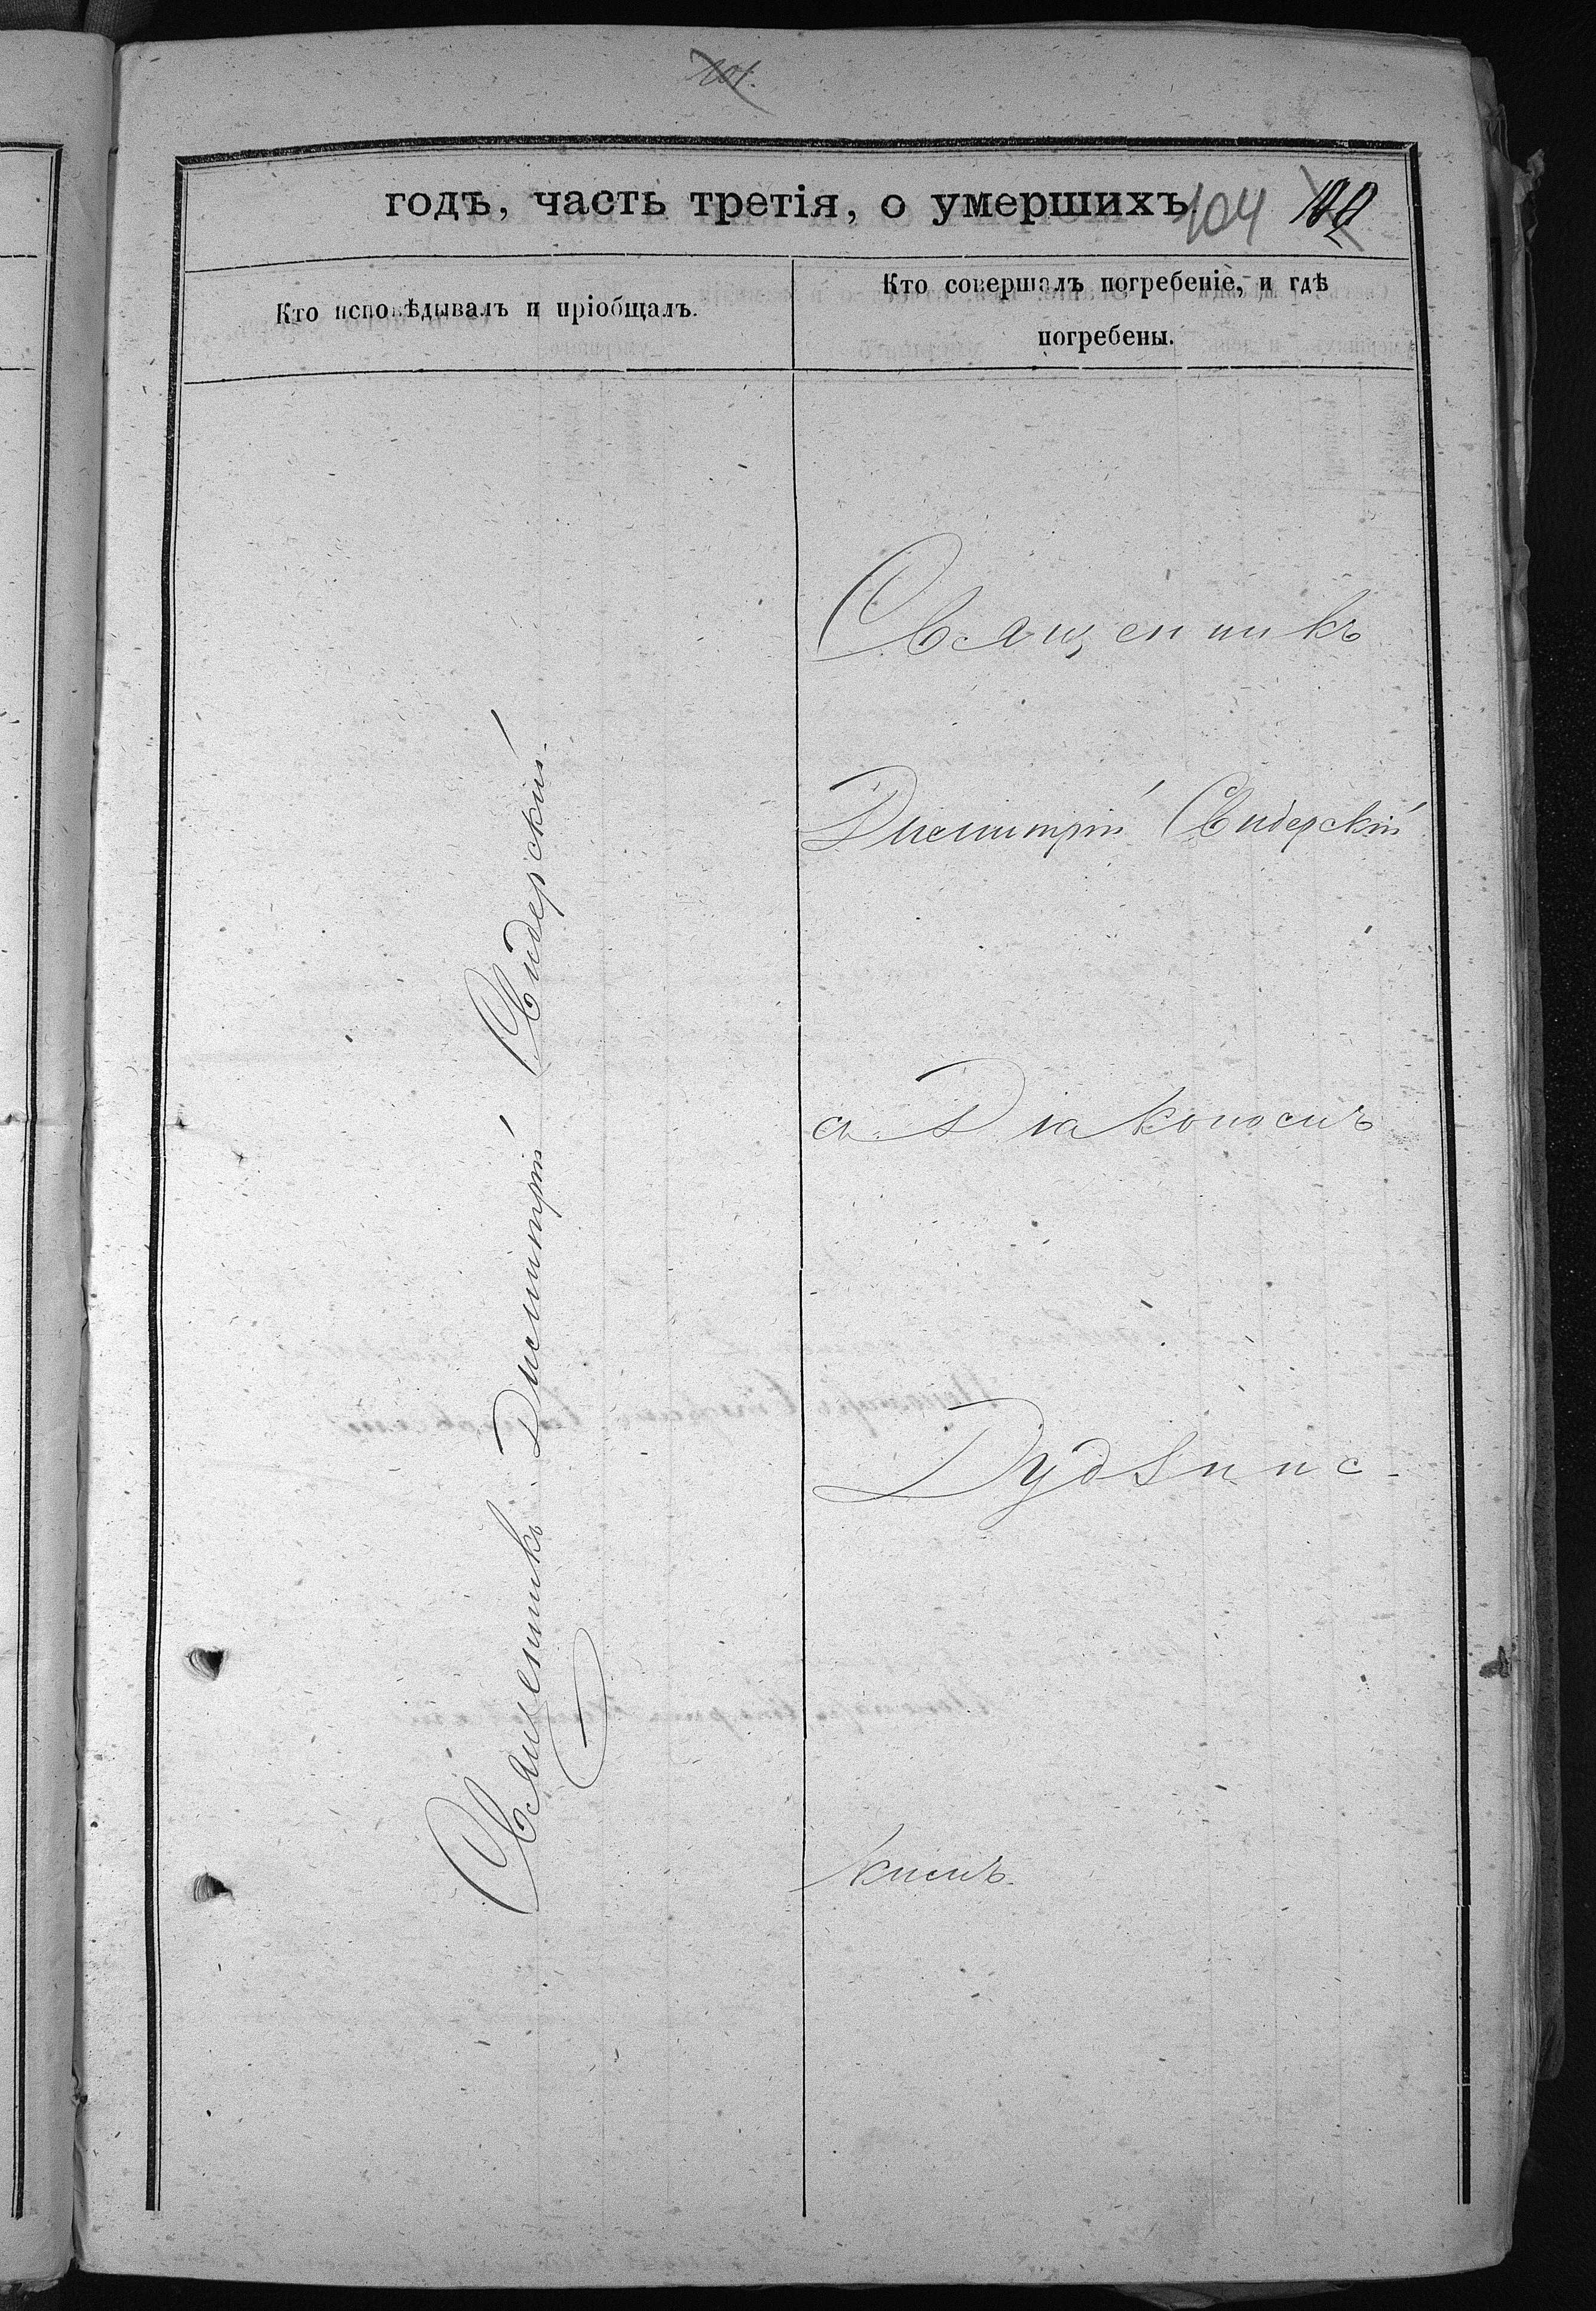 101.
годъ, часть третія, о умершихъ. 104
Кто исповѣдывалъ и пріобщалъ.
Кто совершалъ погребеніе, и гдѣ
погребены.
Священникъ Димитрій Свидерскій.
Священникъ
Димитрій Свидерскій
съ Діакономъ
кимъ.